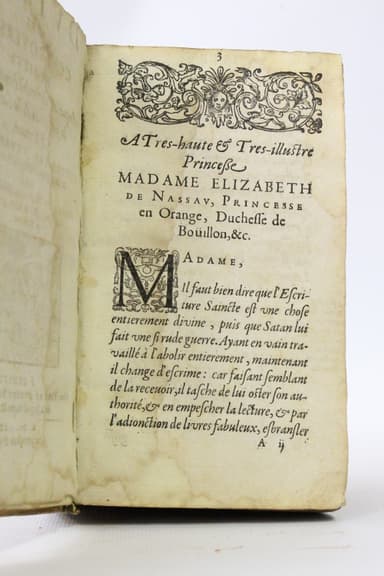 3
A Tres-haute & Tres-illustre
Princesse
MADAME ELIZABETH
DE NASSAV, PRINCESSE
en Orange, Duchesse de
Boüillon, &c.
MADAME,
Il faut bien dire que l'Escri-
ture Saincte est vne chose
entierement divine, puis que Satan lui
fait vne si rude guerre. Ayant en vain tra-
vaillé à l'abolir entierement, maintenant
il change d'escrime: car faisant semblant
de la recevoir, il tasche de lui oster son au-
thorité, & en empescher la lecture, & par
l'adionction de livres fabuleux, esbransler
A ij